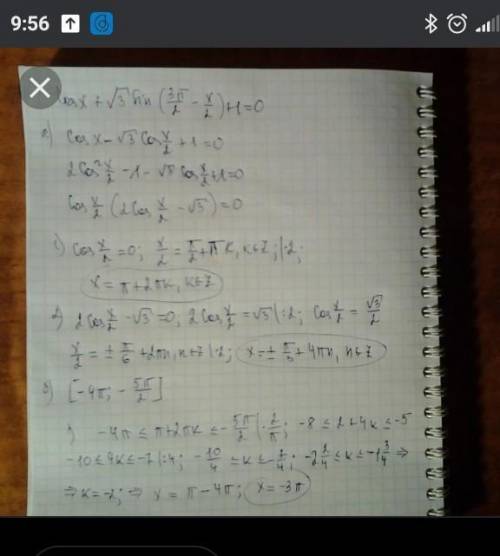 9:56
cos x + √3 sin (3π/2 - x/2) + 1 = 0
a) cos x - √3 cos x/2 + 1 = 0
2cos² x/2 - 1 - √3 cos x/2 + 1 = 0
cos x/2 (2cos x/2 - √3) = 0
1) cos x/2 = 0; x/2 = π/2 + πk, k∈Z; |·2;
x = π + 2πk, k∈Z
2) 2cos x/2 - √3 = 0, 2cos x/2 = √3 |:2; cos x/2 = √3/2
x/2 = ± π/6 + 2πn, n∈Z |·2; x = ± π/3 + 4πn, n∈Z
б) [-4π; -5π/2]
1) -4π ≤ π + 2πk ≤ -5π/2 |·2/π; -8 ≤ 2 + 4k ≤ -5
-10 ≤ 4k ≤ -7 |:4; -10/4 ≤ k ≤ -7/4; -2 2/4 ≤ k ≤ -1 3/4 ⇒
⇒ k = -2; ⇒ x = π - 4π; x = -3π